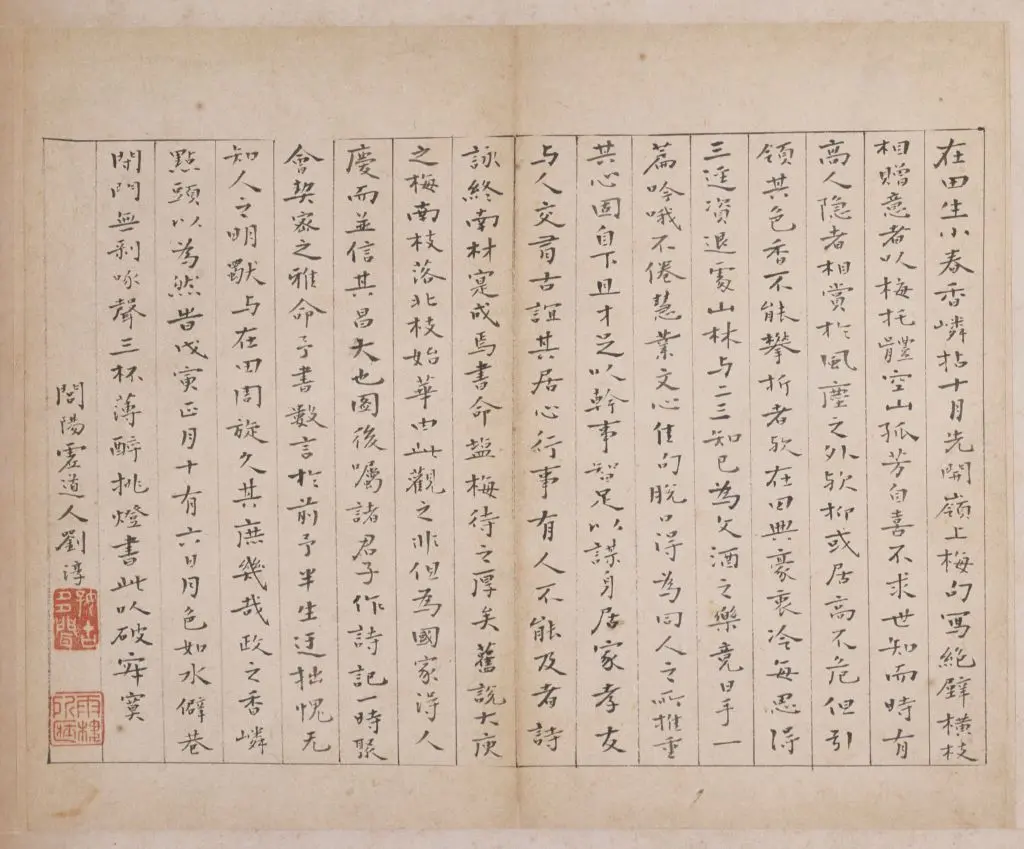 在田生小春香嶙拈十月先開嶺上梅句寫絕壁橫枝
相贈意者以梅托體空山孤芳自喜不求世知而時有
高人隐者相賞於風塵之外欤抑或居高不危但引
領其色香不能攀折者欤在田興豪衷冷每思得
三逕資退處山林与二三知已為文酒之樂竟日手一
篇吟哦不倦慧業文心佳句脫口得為同人之所推重
其心固自下且才足以幹事智足以謀身居家孝友
与人交有古誼其居心行事有人不能及者詩
詠終南材寔成焉書命盐梅待之厚矣舊說大庾
之梅南枝落北枝始華由此觀之非但為國家得人
慶而並信其昌大也圖後囑諸君子作詩記一時聚
會契家之雅命予書數言於前予半生迂拙愧无
知人之明獻与在田周旋久其庶幾哉政之香嶙
點頭以為然昔戊寅正月十有六日月色如水僻巷
閉門無剥啄聲三杯薄醉挑燈書此以破寂寞
問陽虛道人劉淳